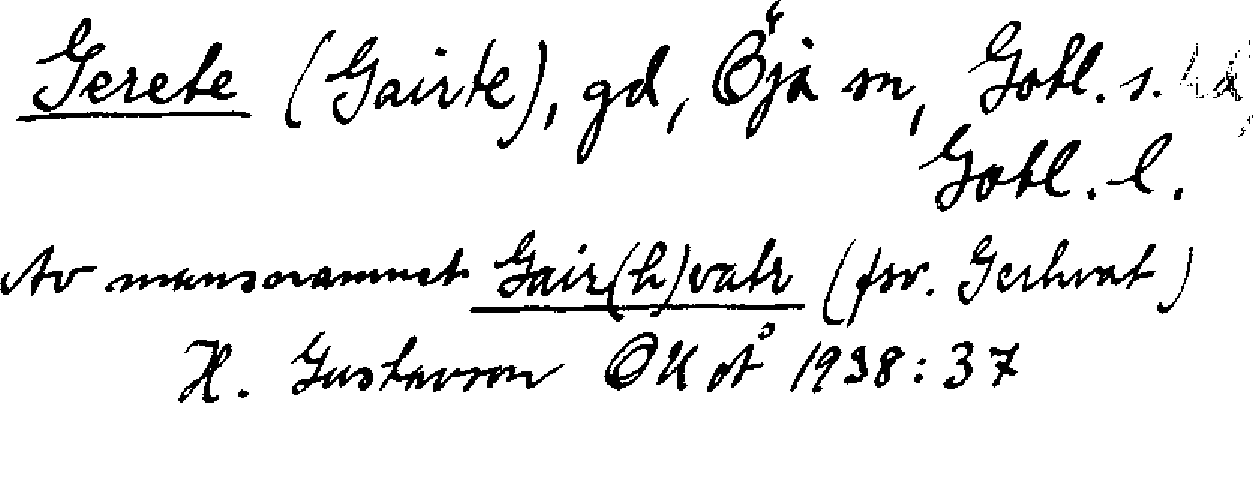 Gerete (Gairte), gd, Öja sn, Gotl. s. hd,
Gotl. l.
Av mansnamnet Gair(h)vatr (fsv. Gerhvat)
H. Gustavson OKÅ 1938:37